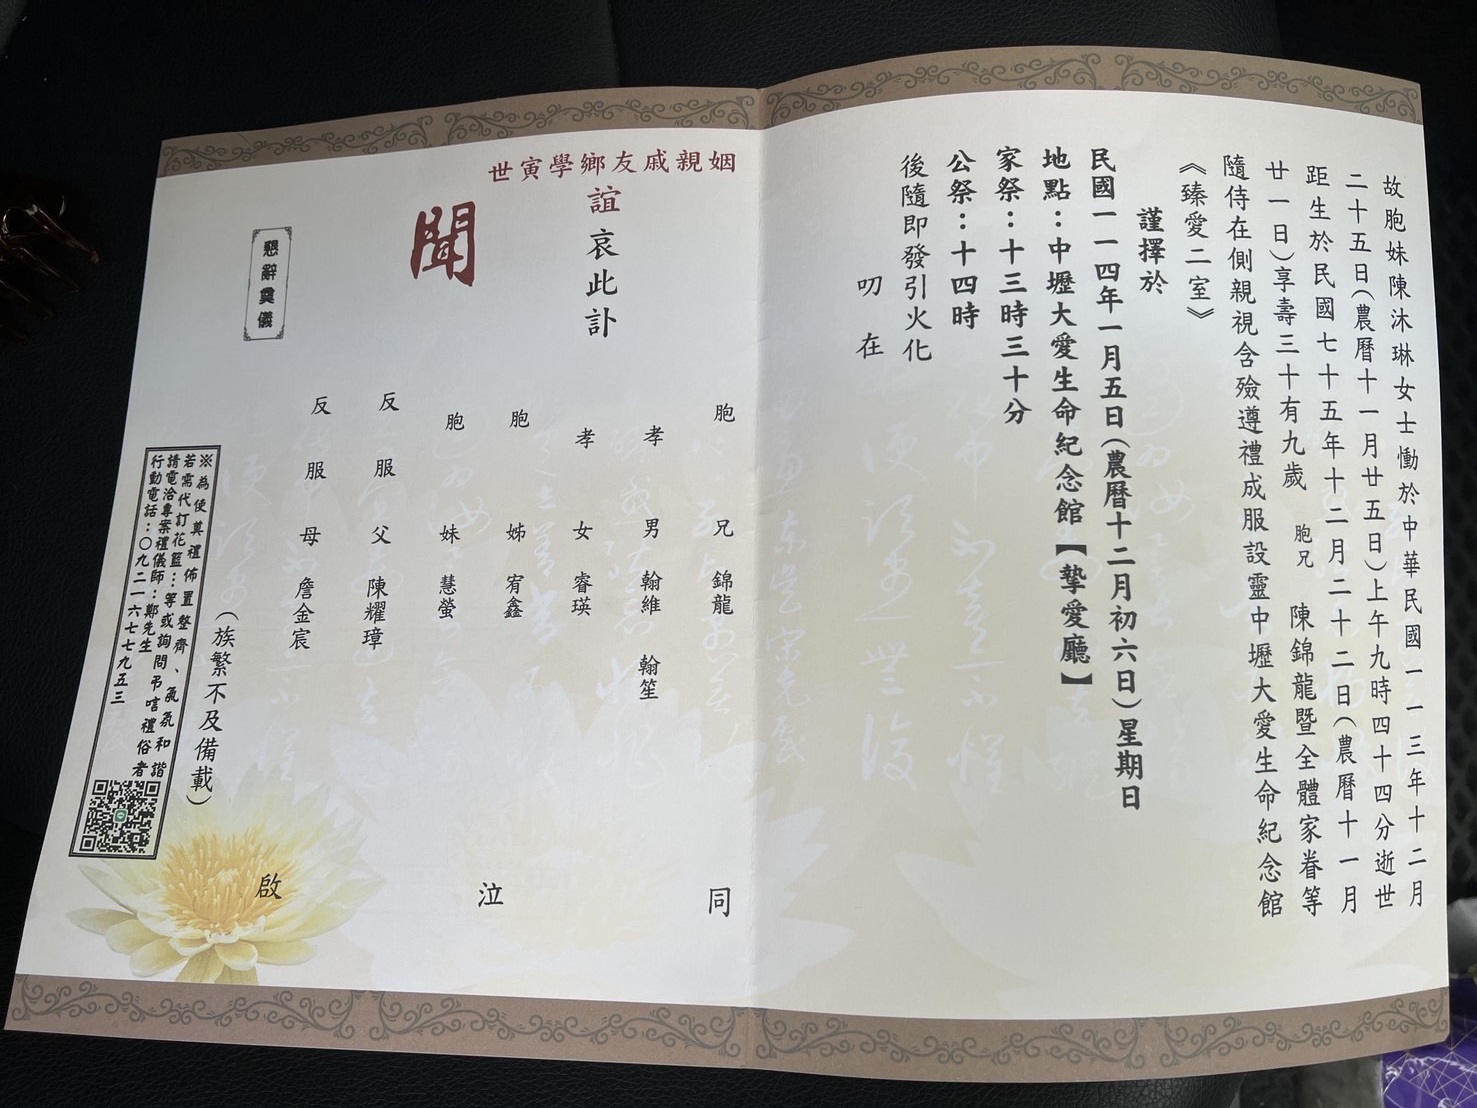 故胞妹陳沐琳女士慟於中華民國一一三年十二月
二十五日(農曆十一月廿五日)上午九時四十四分逝世
距生於民國七十五年十二月二十二日(農曆十一月
廿一日)享壽三十有九歲 胞兄 陳錦龍暨全體家眷等
隨侍在側親視含殮遵禮成服設靈中壢大愛生命紀念館
《臻愛二室》
謹擇於
民國一一四年一月五日(農曆十二月初六日)星期日
地點：中壢大愛生命紀念館【摯愛廳】
家祭：十三時三十分
公祭：十四時
後隨即發引火化
叨在
姻親戚友鄉學寅世
誼哀此訃
聞
懇辭奠儀
胞兄 錦龍
孝男 翰維 翰笙
孝女 睿瑛
胞姊 宥鑫
胞妹 慧螢
反服父 陳耀璋
反服母 詹金宸
同泣啟
(族繁不及備載)
※為使奠禮佈置整齊、氣氛和諧
若需代訂花籃…等或詢問弔唁禮俗者
請電洽專案禮儀師：鄭先生
行動電話：〇九二一六七七九五三